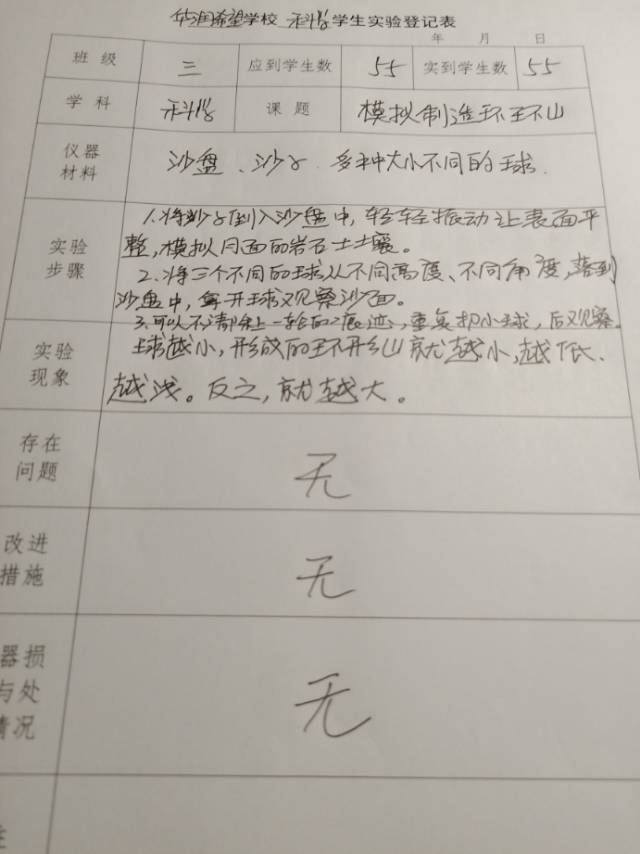 华润希望学校 科学 学生实验登记表
年 月 日
班 级 三 应到学生数 55 实到学生数 55
学 科 科学 课 题 模拟制造环形山
仪器 材料 沙盘、沙子、多种大小不同的球.
实验 步骤
1.将沙子倒入沙盘中,轻轻振动让表面平
整,模拟月面的岩石土壤。
2.将三个不同的球从不同高度、不同角度,落到
沙盘中,拿开球观察沙面。
3.可以不清除上一轮的痕迹,重复扔小球,后观察
实验 现象
球越小,形成的环形山就越小,越低、
越浅。反之,就越大。
存在 问题 无
改进 措施 无
器损 与处 情况 无